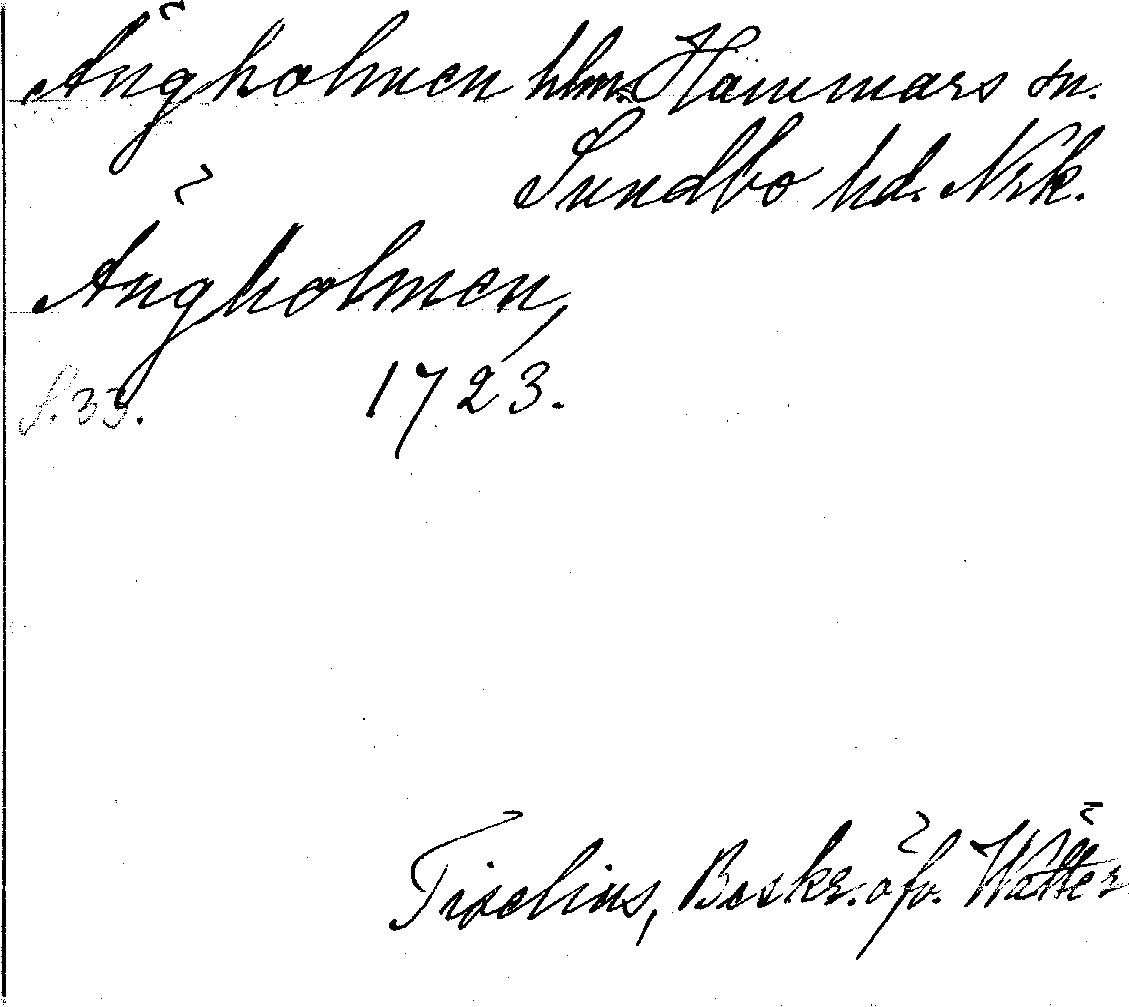 Ängholmen hlm. Hammars sn.
Sundbo hd. Nrk.
Ängholmen,
S. 33. 1723.
Tiselius, Beskr. öfv. Wätter